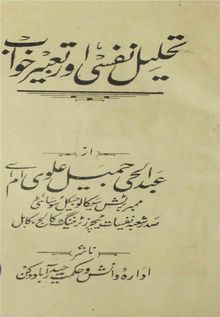 تحلیل نفسی اور تعبیر خواب
از
عبدالحی جمیل علوی ام اے
ممبر برٹش سیکالوجیکل سوسائٹی
صدر شعبہ نفسیات ٹیچرز ٹریننگ کالج، کابل
ناشر
ادارہ دانش و حکمت حیدرآباد دکن